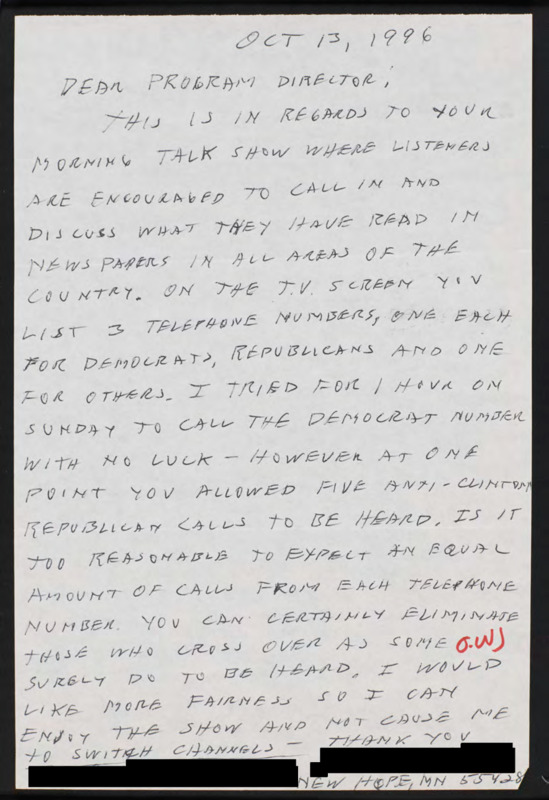 OCT 13, 1996
DEAR PROGRAM DIRECTOR,
THIS IS IN REGARDS TO YOUR
MORNING TALK SHOW WHERE LISTENERS
ARE ENCOURAGED TO CALL IN AND
DISCUSS WHAT THEY HAVE READ IN
NEWSPAPERS IN ALL AREAS OF THE
COUNTRY. ON THE T.V. SCREEN YOU
LIST 3 TELEPHONE NUMBERS, ONE EACH
FOR DEMOCRATS, REPUBLICANS AND ONE
FOR OTHERS. I TRIED FOR 1 HOUR ON
SUNDAY TO CALL THE DEMOCRAT NUMBER
WITH NO LUCK - HOWEVER AT ONE
POINT YOU ALLOWED FIVE ANTI-CLINTON
REPUBLICAN CALLS TO BE HEARD. IS IT
TOO REASONABLE TO EXPECT AN EQUAL
AMOUNT OF CALLS FROM EACH TELEPHONE
NUMBER. YOU CAN CERTAINLY ELIMINATE
THOSE WHO CROSS OVER AS SOME
SURELY DO TO BE HEARD. I WOULD
LIKE MORE FAIRNESS SO I CAN
ENJOY THE SHOW AND NOT CAUSE ME
TO SWITCH CHANNELS - THANK YOU
NEW HOPE, MN 55428